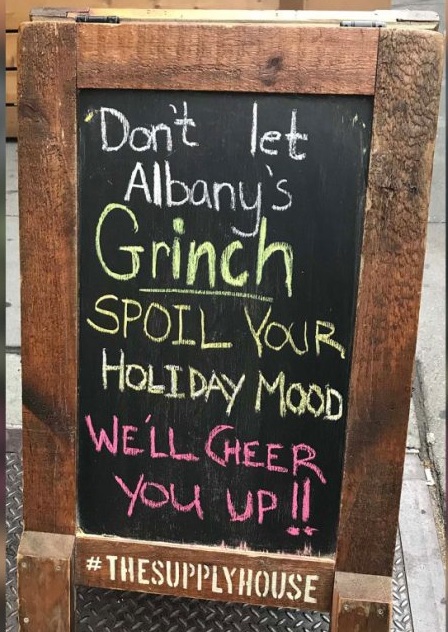 Don't let
Albany's
Grinch
SPOIL YOUR
HOLIDAY MOOD
WE'LL CHEER
YOU UP!!
#THESUPPLYHOUSE